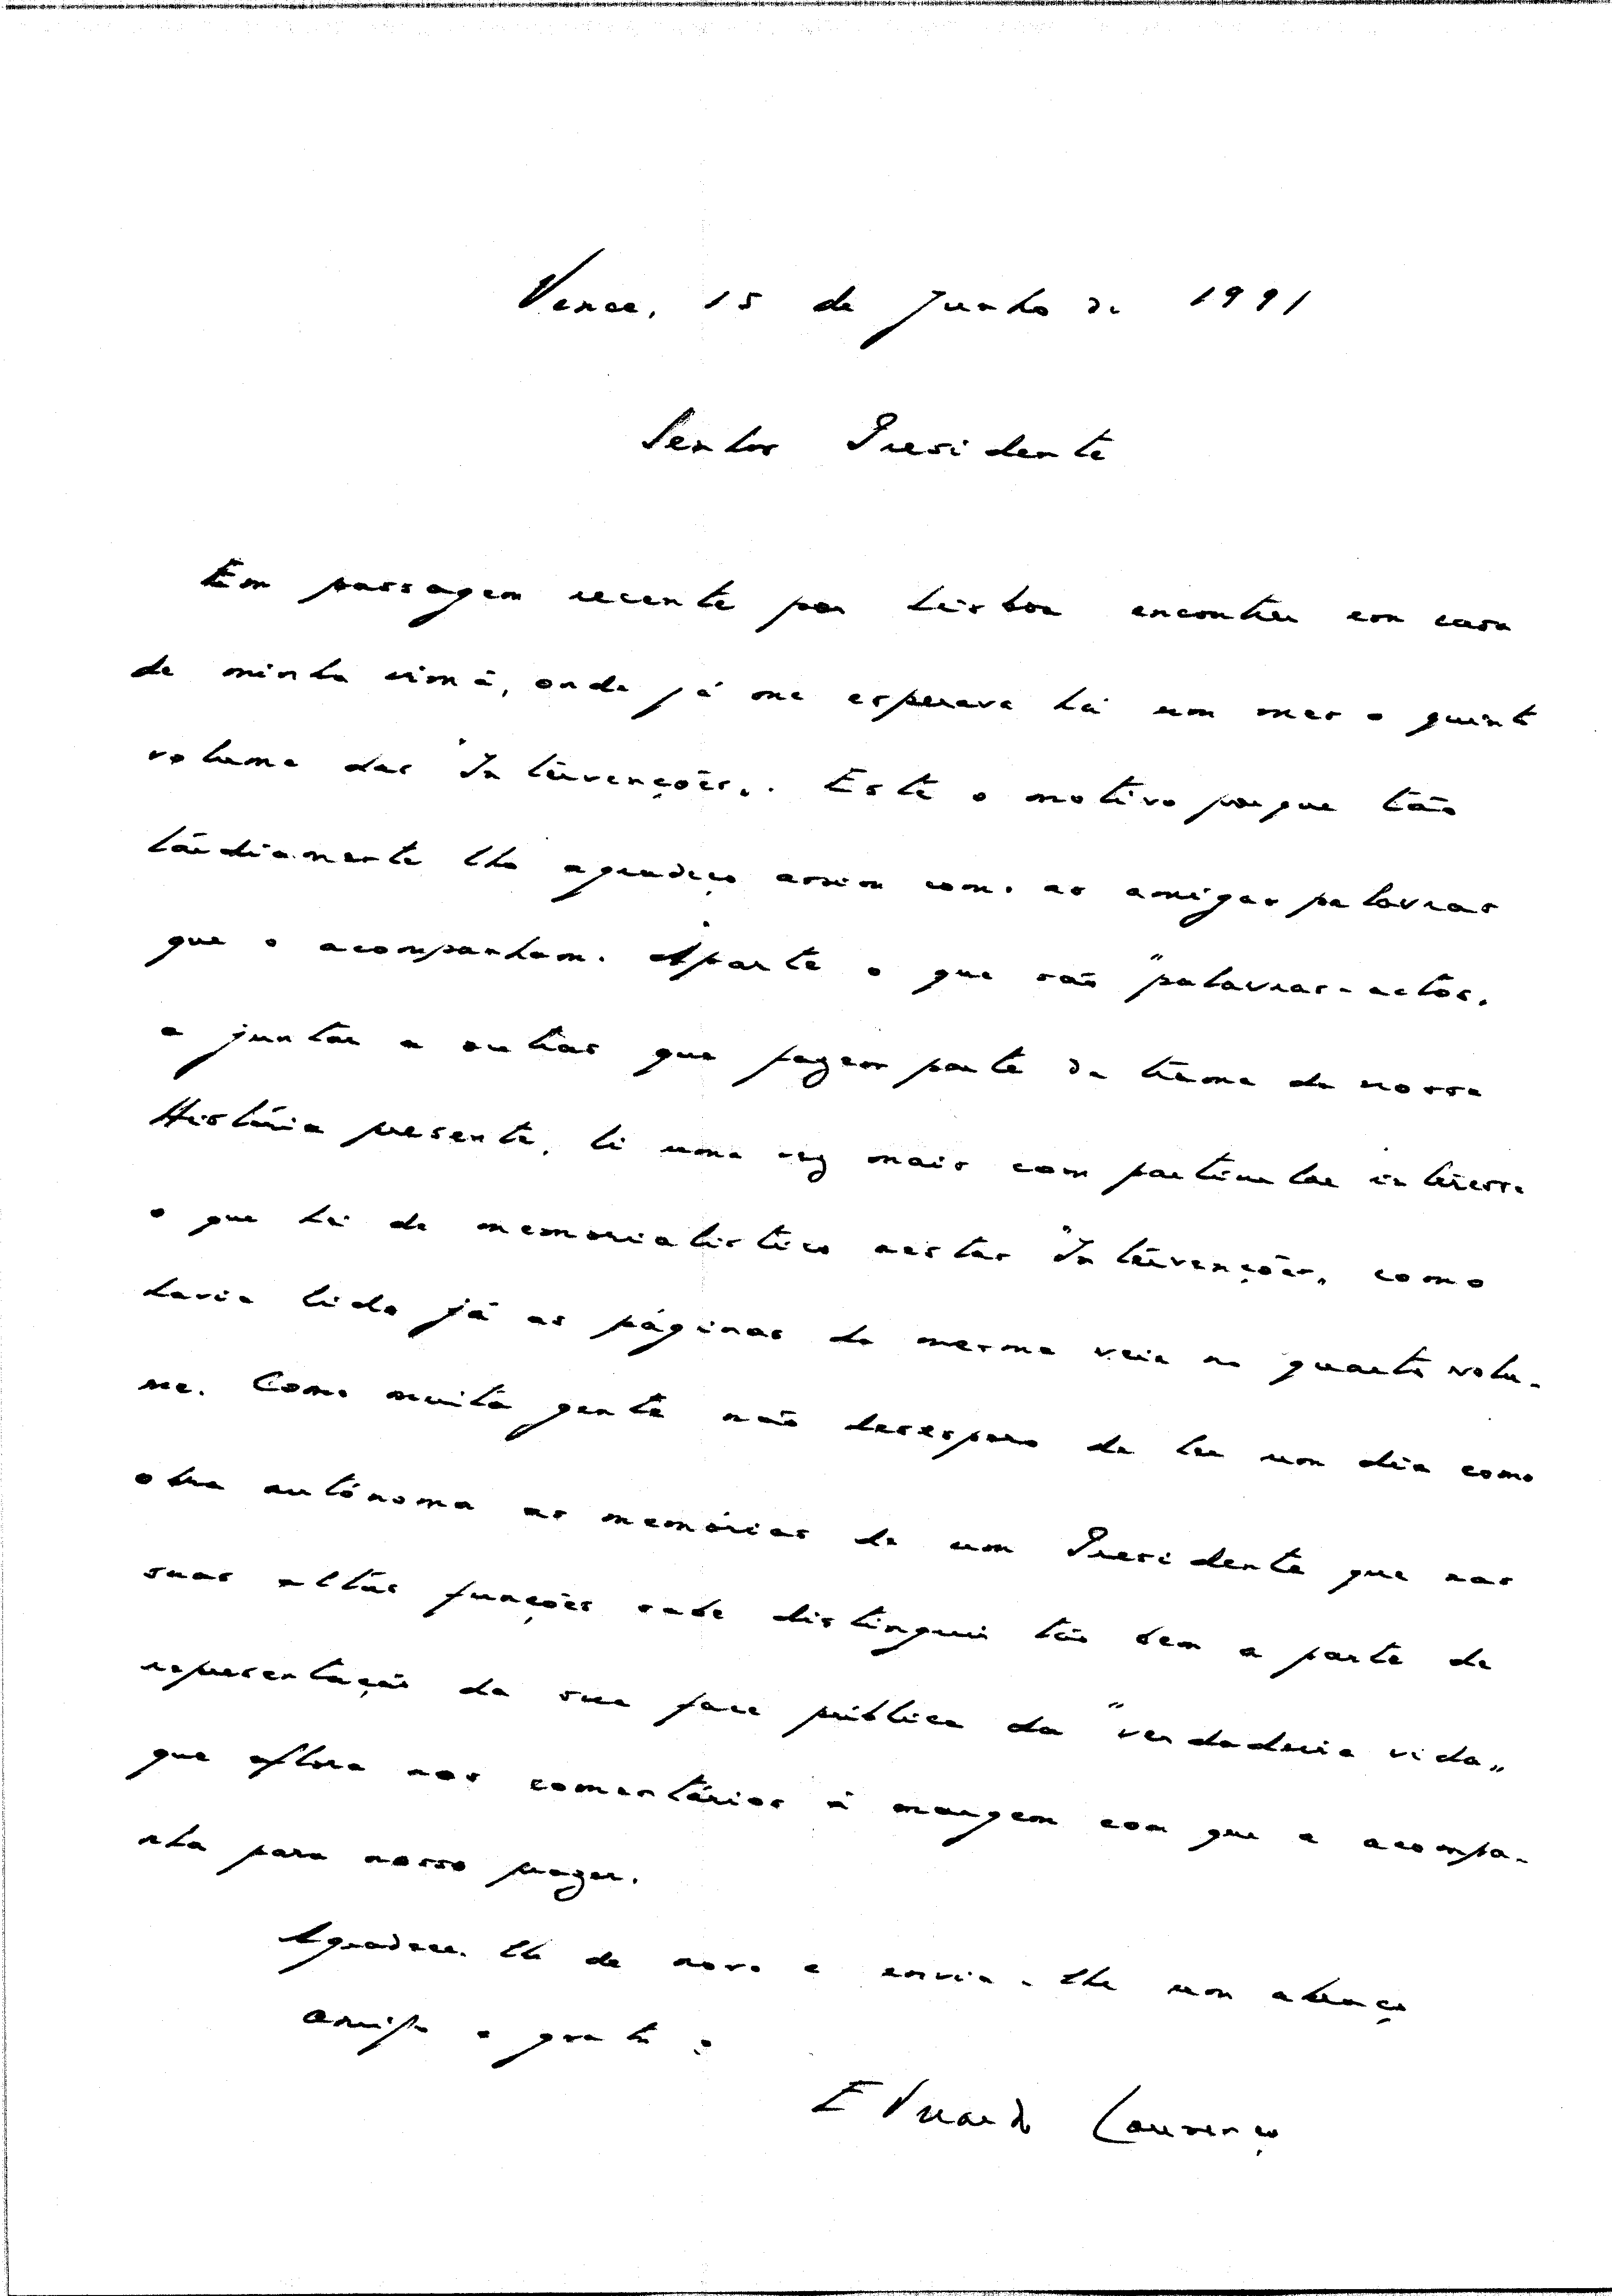 Vence, 15 de Junho de 1991
Senhor Presidente
Em passagem recente por Lisboa encontrei em casa
de minha irmã, onde já me esperava há um mês o quinto
volume das "Intervenções". Este o motivo porque tão
tardiamente lho agradeço assim como as amigas palavras
que o acompanham. Aparte o que são "palavras-actos"
a juntar a outras que fazem parte da trama da nossa
História presente, li uma vez mais com particular interesse
o que há de memorialístico nestas "Intervenções" como
havia lido já as páginas da mesma veia no quarto volu-
me. Como muita gente não desespero de ler um dia como
obra autónoma as memórias de um Presidente que nas
suas altas funções sabe distinguir tão bem a parte de
representação da sua face pública da "verdadeira vida"
que aflora nos comentários à margem com que a acompa-
nha para nosso prazer.
Agradece-lhe de novo e envia-lhe um abraço
amigo e grato o
Eduardo Lourenço